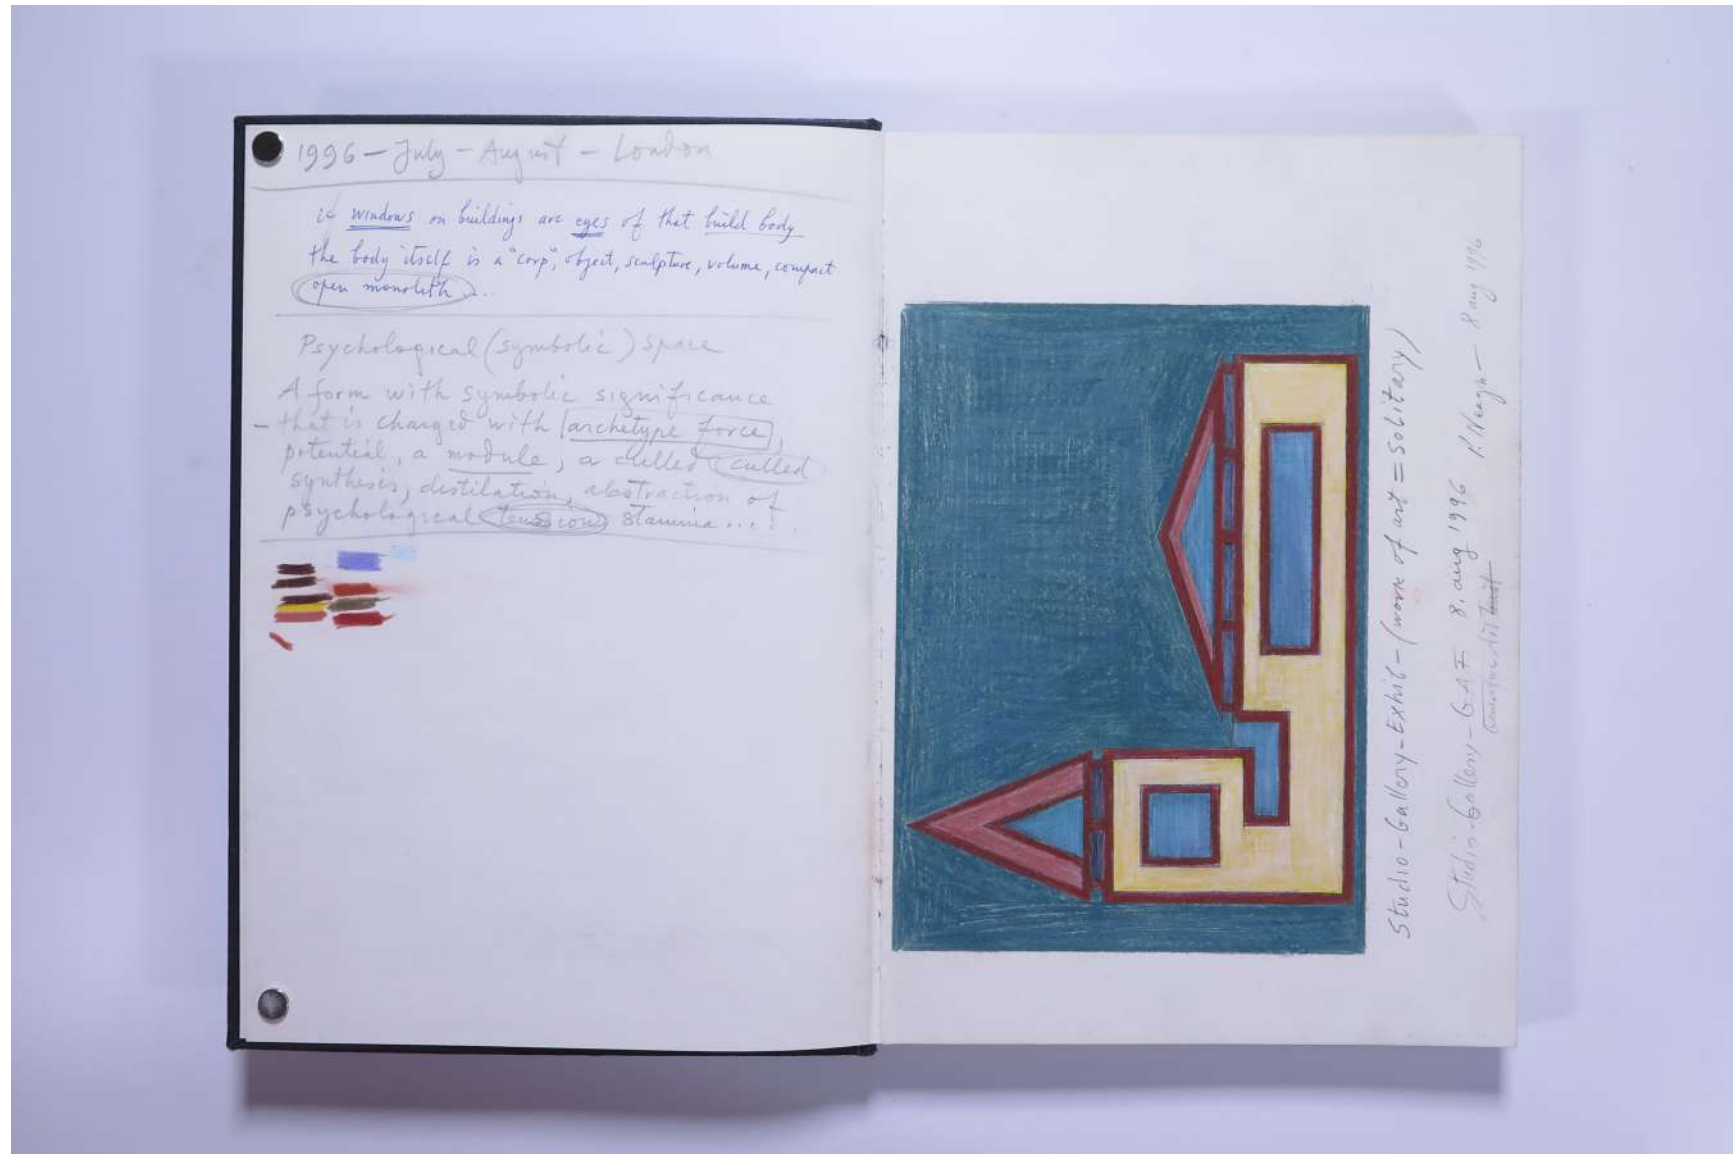 1996 – July – August – London
if windows on buildings are eyes of that build body
the body itself is a "corp", object, sculpture, volume, compact
open monolith....
Psychological (symbolic) space
A form with symbolic significance
– that is charged with archetype force,
potential, a module, a culled culled
synthesis, distilation, abstraction of
psychological tension stamina...
Studio-Gallery-Exhib – (work of art = solitary)
Studio-Gallery – GAF 8. aug 1996 P. Neagu – 8 aug 1996